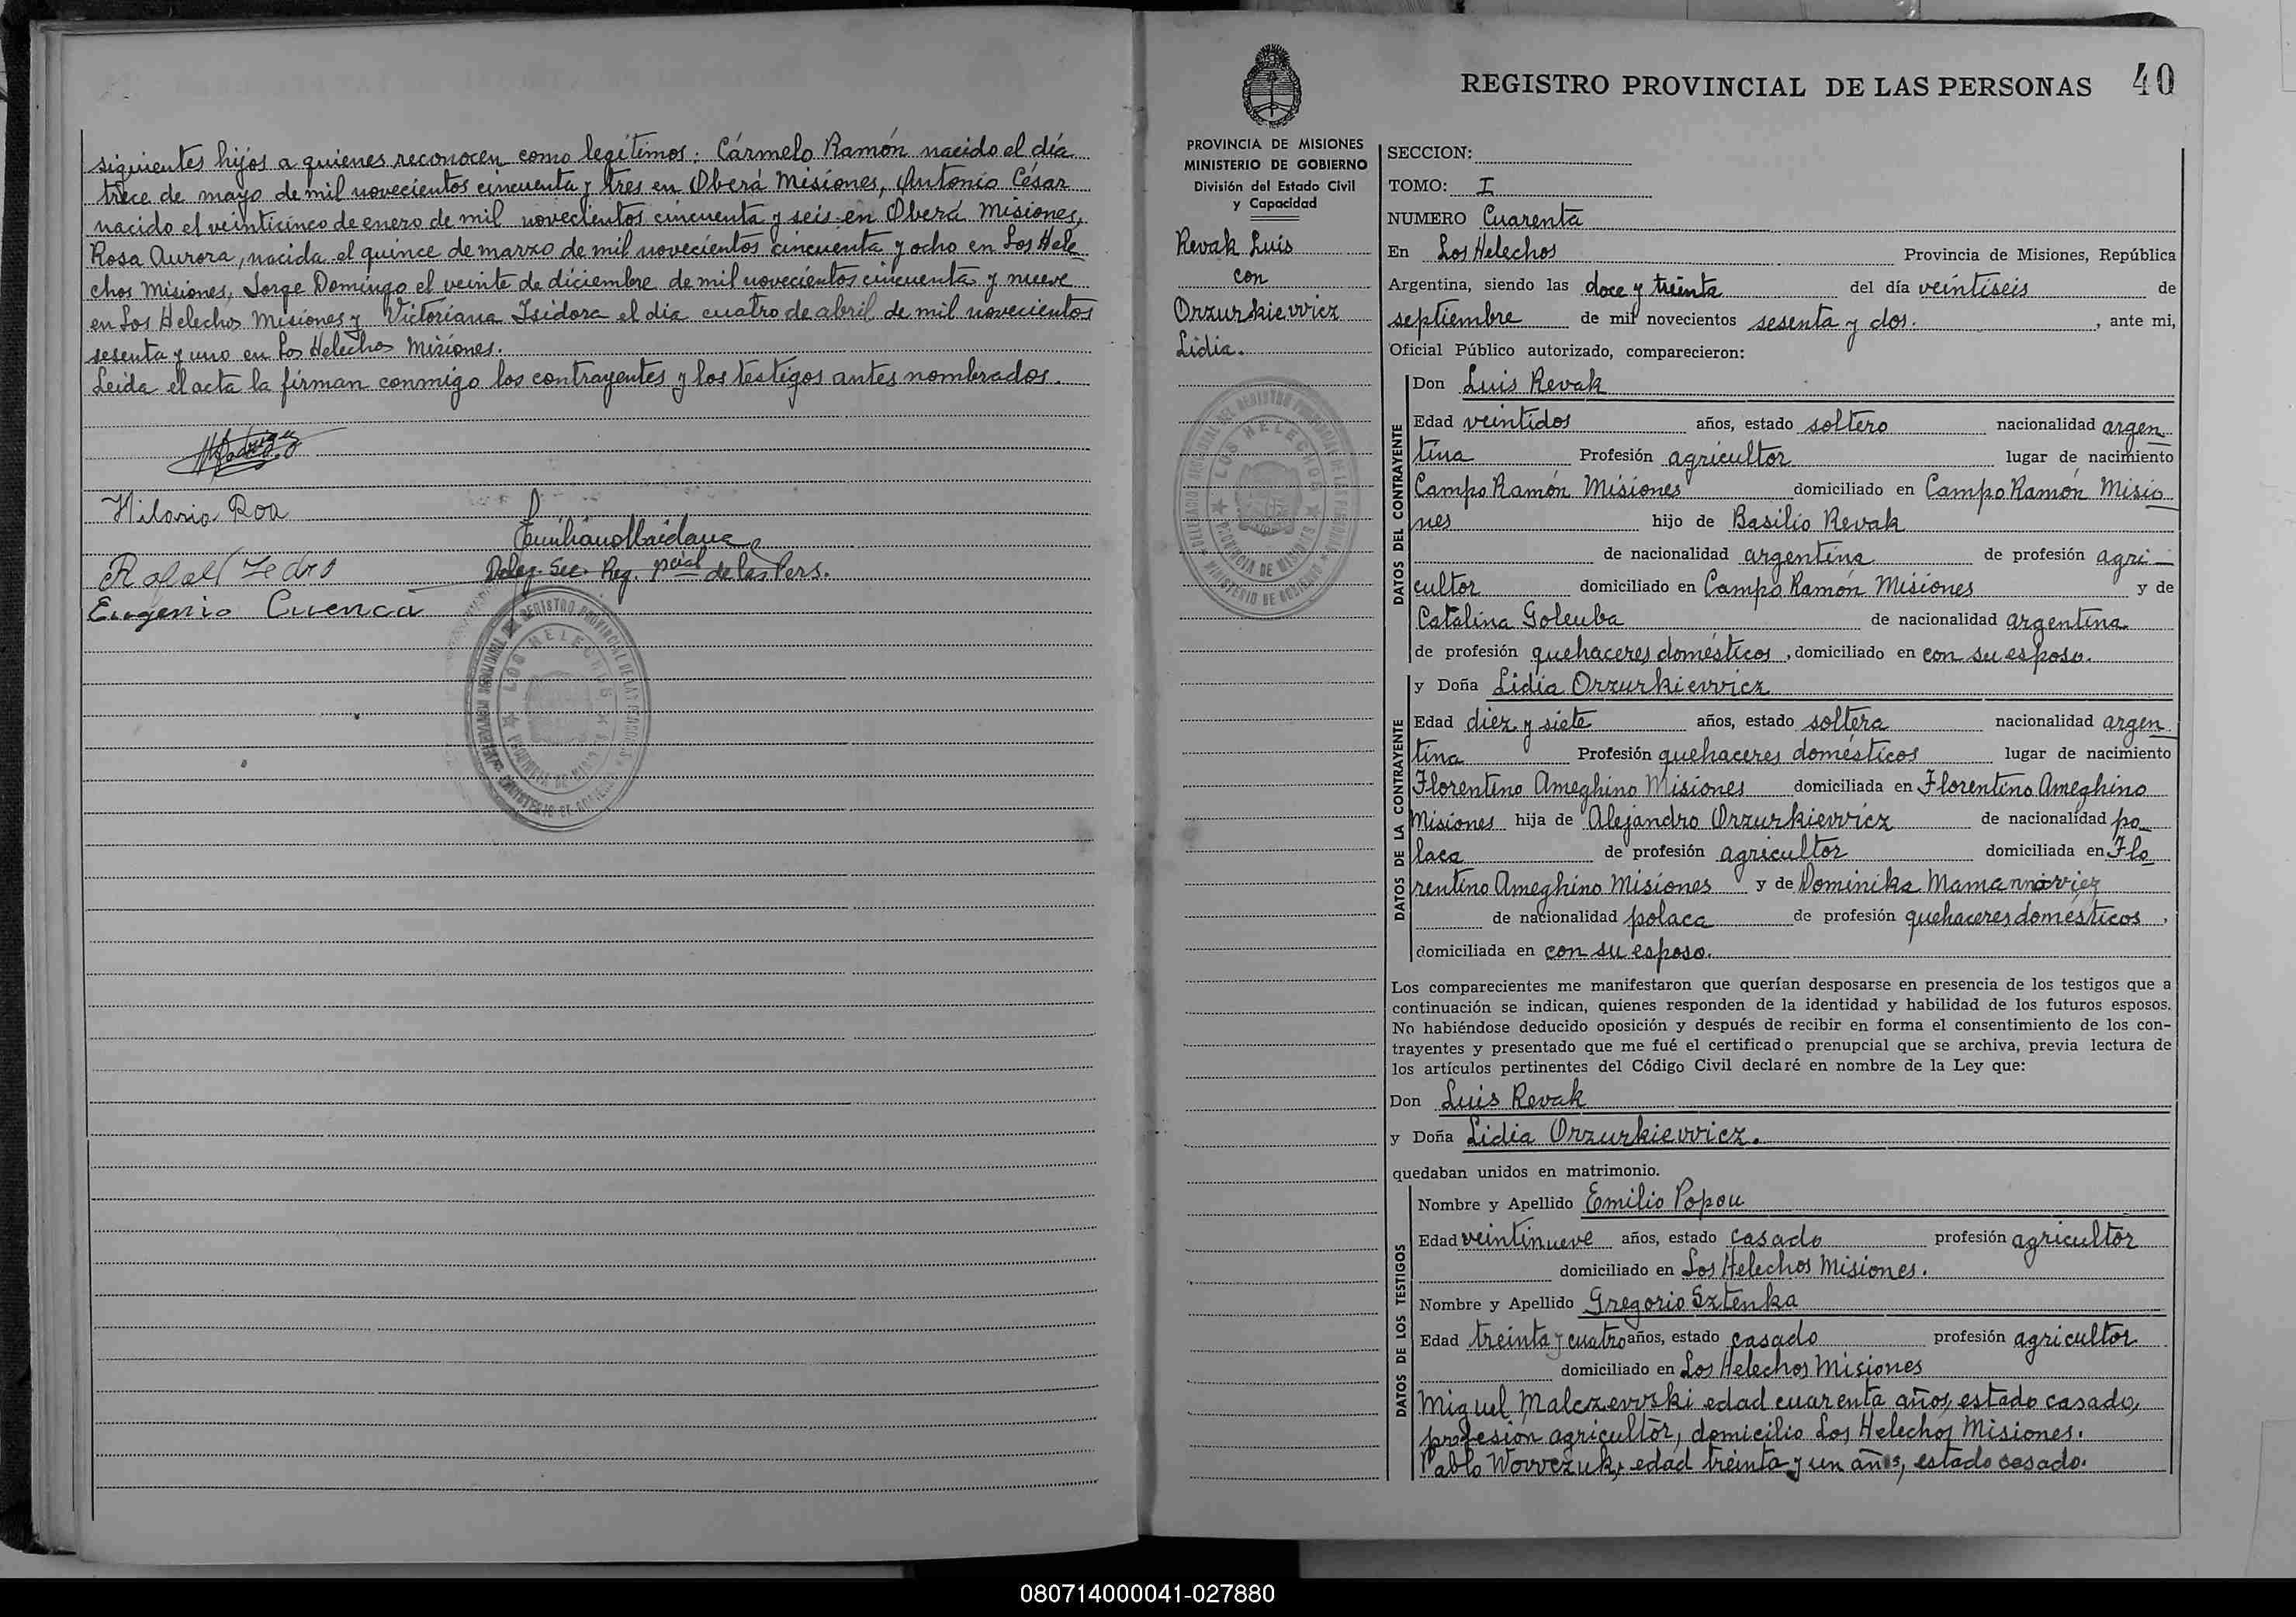 siguientes hijos a quienes reconocen como legítimos: Cármelo Ramón nacido el día
trece de mayo de mil novecientos cincuenta y tres en Oberá Misiones, Antonio César
nacido el veinticinco de enero de mil novecientos cincuenta y seis en Oberá Misiones,
Rosa Aurora, nacida el quince de marzo de mil novecientos cincuenta y ocho en Los Hele
chos Misiones, Jorge Domingo el veinte de diciembre de mil novecientos cincuenta y nueve
en Los Helechos Misiones y Victoriana Isidora el día cuatro de abril de mil novecientos
sesenta y uno en Los Helechos Misiones.
Leída el acta la firman conmigo los contrayentes y los testigos antes nombrados.
Hilario Roa
Emiliano Maidana
Deleg. Sec. Reg. pcial de las Pers.
Eugenio Cuenca
LOS HELECHOS
PROVINCIA DE MISIONES
REGISTRO PROVINCIAL DE LAS PERSONAS 40
PROVINCIA DE MISIONES
MINISTERIO DE GOBIERNO
División del Estado Civil
y Capacidad
Revak Luis
con
Orzurkievvicz
Lidia.
LOS HELECHOS
PROVINCIA DE MISIONES
MINISTERIO DE GOBIERNO
SECCION:
TOMO: I
NUMERO Cuarenta
En Los Helechos Provincia de Misiones, República
Argentina, siendo las doce y treinta del día veintiseis de
septiembre de mil novecientos sesenta y dos. , ante mi,
Oficial Público autorizado, comparecieron:
DATOS DEL CONTRAYENTE
Don Luis Revak
Edad veintidos años, estado soltero nacionalidad argen
tina Profesión agricultor lugar de nacimiento
Campo Ramón Misiones domiciliado en Campo Ramón Misio
nes hijo de Basilio Revak
de nacionalidad argentina de profesión agri
cultor domiciliado en Campo Ramón Misiones y de
Catalina Goleuba de nacionalidad argentina
de profesión quehaceres domésticos, domiciliado en con su esposo.
DATOS DE LA CONTRAYENTE
y Doña Lidia Orzurkievvicz
Edad diez y siete años, estado soltera nacionalidad argen
tina Profesión quehaceres domésticos lugar de nacimiento
Florentino Ameghino Misiones domiciliada en Florentino Ameghino
Misiones hija de Alejandro Orzurkievvicz de nacionalidad po
laca de profesión agricultor domiciliada en Flo
rentino Ameghino Misiones y de Dominika
de nacionalidad polaca de profesión quehaceres domésticos,
domiciliada en con su esposo.
Los comparecientes me manifestaron que querían desposarse en presencia de los testigos que a
continuación se indican, quienes responden de la identidad y habilidad de los futuros esposos.
No habiéndose deducido oposición y después de recibir en forma el consentimiento de los con-
trayentes y presentado que me fué el certificado prenupcial que se archiva, previa lectura de
los artículos pertinentes del Código Civil declaré en nombre de la Ley que:
Don Luis Revak
y Doña Lidia Orzurkievvicz.
quedaban unidos en matrimonio.
DATOS DE LOS TESTIGOS
Nombre y Apellido Emilio Popou
Edad veintinueve años, estado casado profesión agricultor
domiciliado en Los Helechos Misiones.
Nombre y Apellido Gregorio Sztenka
Edad treinta y cuatro años, estado casado profesión agricultor
domiciliado en Los Helechos Misiones
Miguel Malczevvski edad cuarenta años, estado casado,
profesion agricultor, domicilio Los Helechos Misiones.
Pablo Wovvczuk, edad treinta y un años, estado casado.
080714000041-027880